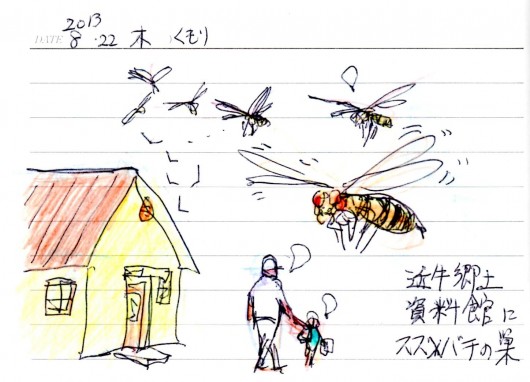 2013
DATE 8.22 木 くもり
近牛郷土
資料館に
スズメバチの巣